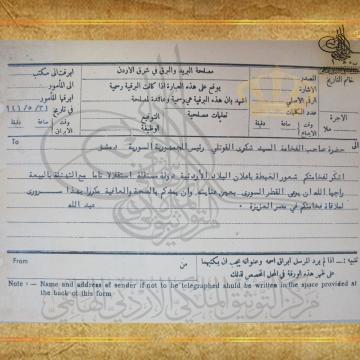 مصلحة البريد والبرق في شرق الاردن
خاتم التاريخ
المصدر
الاشارة
الرقم الاصلي
عدد الكلمات
الاجرة
وقت الايداع
ساعة دقيقة
يوقع على هذه العبارة اذا كانت البرقية رسمية
اشهد بان هذه البرقية هي رسمية وعائدة لمصلحة
تعليمات مصلحية
التوقيع
الوظيفة
ابرقت الى مكتب
الى المأمور
ابرقها المأمور
في تاريخ
وقت الابراق
ساعة دقيقة
To
الى
حضرة صاحب الفخامة السيد شكري القوتلي رئيس الجمهورية السورية دمشق
اشكر لفخامتكم شعور الغبطة باعلان البلاد الاردنية دولة مستقلة استقلالا تاما مع التهنئة بالبيعة
راجيا الله ان يرعى القطر السوري بعين عنايته وان يمدكم بالصحة والعافية مكررا بهذا سروري
لعلاقة بفخامتكم في مصر العزيزة
عبد الله
From
من
تنبيه : ـ اذا لم يرد المرسل ابراق اسمه وعنوانه يجب ان يكتبهما
على ظهر هذه الورقة في المحل المخصص لذلك
Note :— Name and address of sender if not to be telegraphed should be written in the space provided at
the back of this form
مركز التوثيق الملكي الأردني الهاشمي